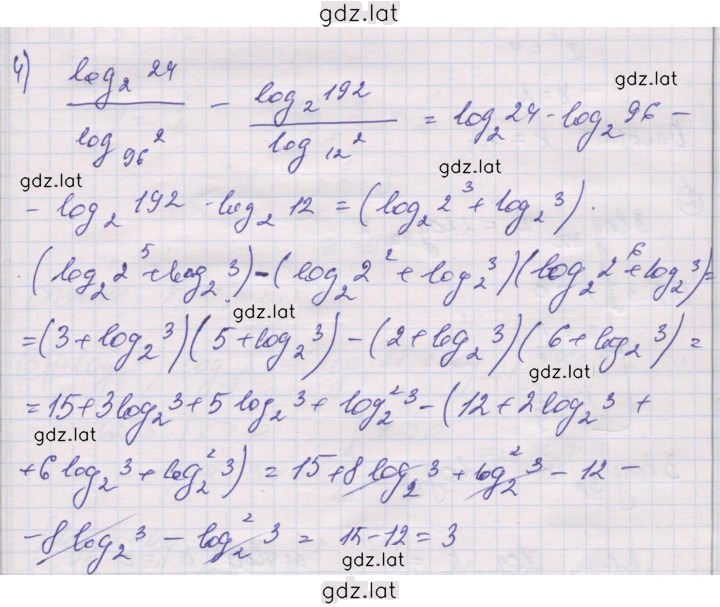 gdz.lat
4) log₂ 24 / log₉₆ 2 - log₂ 192 / log₁₂ 2 = log₂ 24 · log₂ 96 -
gdz.lat
gdz.lat
gdz.lat
- log₂ 192 · log₂ 12 = (log₂ 2³ + log₂ 3) ·
(log₂ 2⁵ + log₂ 3) - (log₂ 2² + log₂ 3)(log₂ 2⁶ + log₂ 3) =
gdz.lat
= (3 + log₂ 3)(5 + log₂ 3) - (2 + log₂ 3)(6 + log₂ 3) =
gdz.lat
= 15 + 3 log₂ 3 + 5 log₂ 3 + log₂² 3 - (12 + 2 log₂ 3 +
gdz.lat
+ 6 log₂ 3 + log₂² 3) = 15 + 8 log₂ 3 + log₂² 3 - 12 -
- 8 log₂ 3 - log₂² 3 = 15 - 12 = 3
gdz.lat
gdz.lat